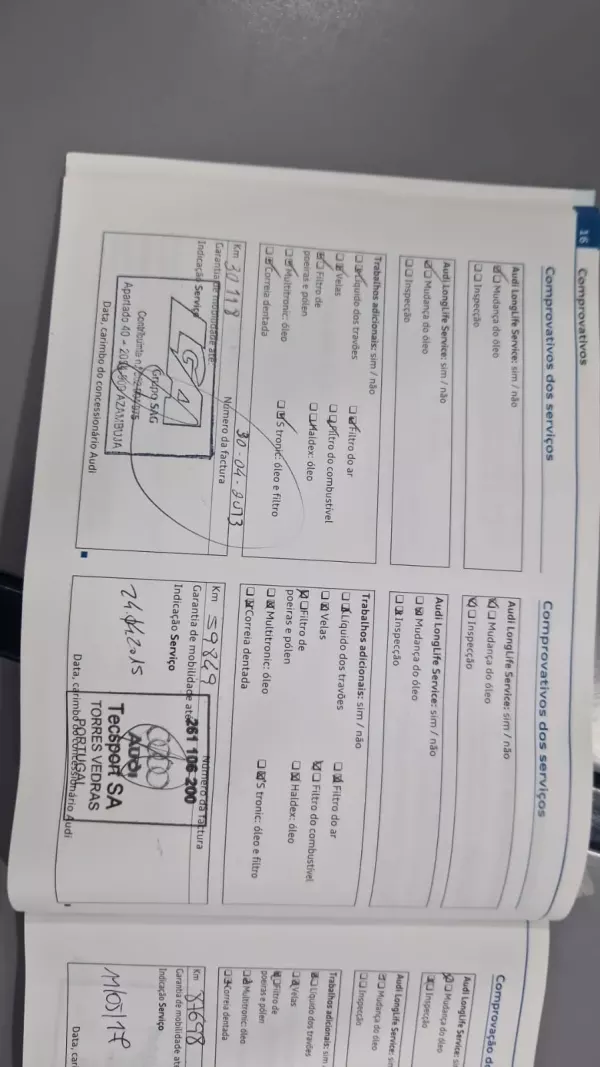 16
Comprovativos
Comprovativos dos serviços
Audi LongLife Service: sim / não
Mudança do óleo
Inspecção
Audi LongLife Service: sim / não
Mudança do óleo
Inspecção
Trabalhos adicionais: sim / não
Líquido dos travões
Filtro do ar
Velas
Filtro do combustível
Filtro de
poeiras e pólen
Haldex: óleo
Multitronic: óleo
S tronic: óleo e filtro
Correia dentada
Km 30118
30-04-2013
Garantia de mobilidade até
Número da factura
Indicação Serviço
Grupo SAG
Contribuinte
Apartado 40 - AZAMBUJA
Data, carimbo do concessionário Audi
Comprovativos dos serviços
Audi LongLife Service: sim / não
Mudança do óleo
Inspecção
Audi LongLife Service: sim / não
Mudança do óleo
Inspecção
Trabalhos adicionais: sim / não
Líquido dos travões
Filtro do ar
Velas
Filtro do combustível
Filtro de
poeiras e pólen
Haldex: óleo
Multitronic: óleo
S tronic: óleo e filtro
Correia dentada
Km 59849
Número da factura
Garantia de mobilidade até
261 106 200
Indicação Serviço
AUDI
Tecspor SA
TORRES VEDRAS
PORTUGAL
Data, carimbo do concessionário Audi
Comprovação d
Audi LongLife Service: s
Mudança do óleo
Inspecção
Audi LongLife Service: si
Mudança do óleo
Inspecção
Trabalhos adicionais: sim
Líquido dos travões
Velas
Filtro de
poeiras e pólen
Multitronic: óleo
Correia dentada
Km 87698
Garantia de mobilidade at
Indicação Serviço
11/05/17
Data, car